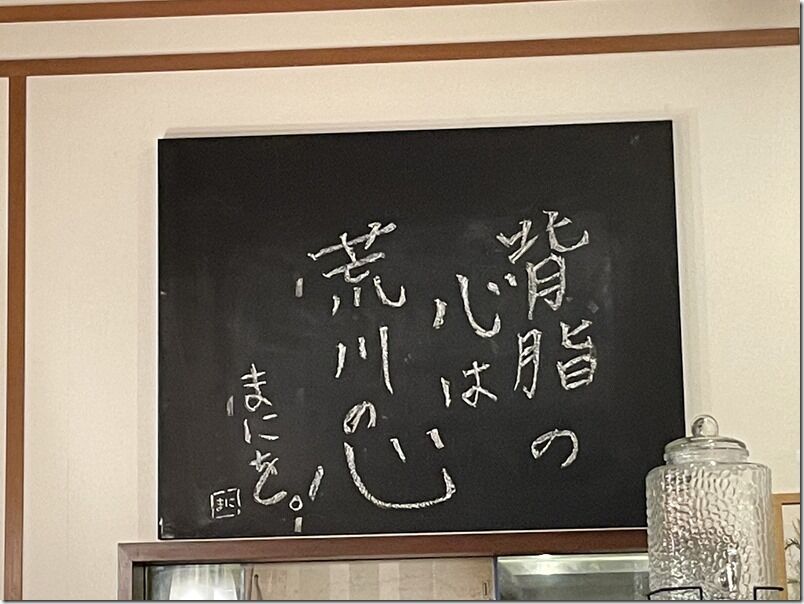 背脂の
心は
荒川の心
まにを!
まに